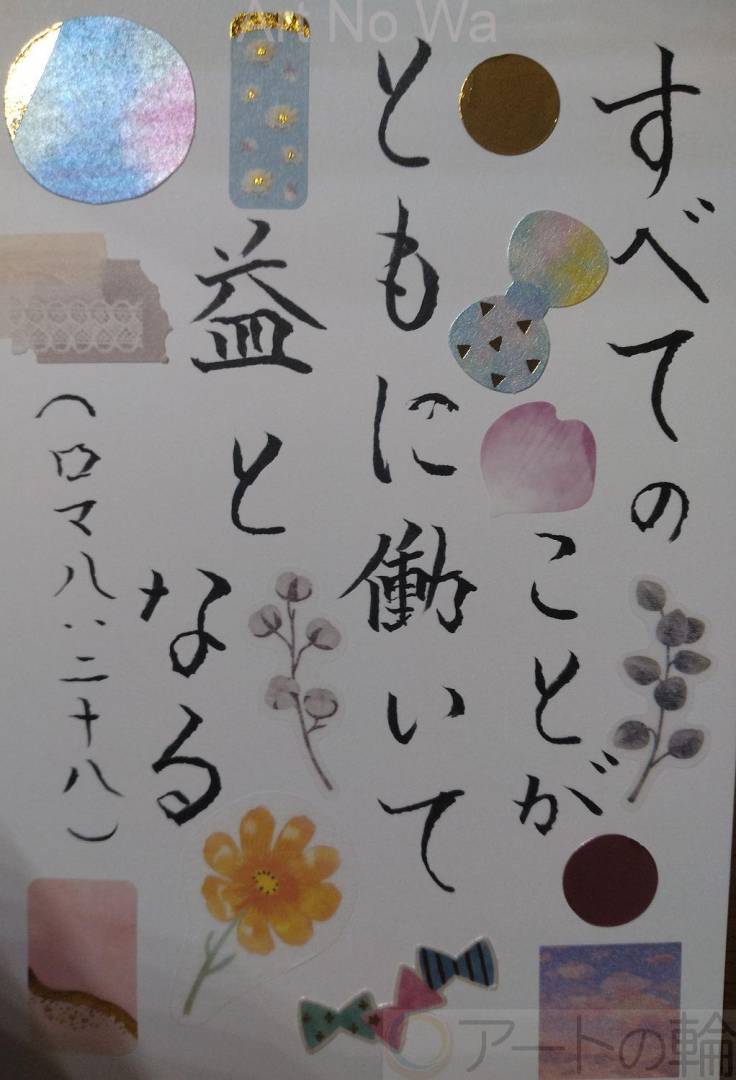 Art No Wa
すべての
ことが
ともに働いて
益と
なる
（ロマ八：二十八）
アートの輪